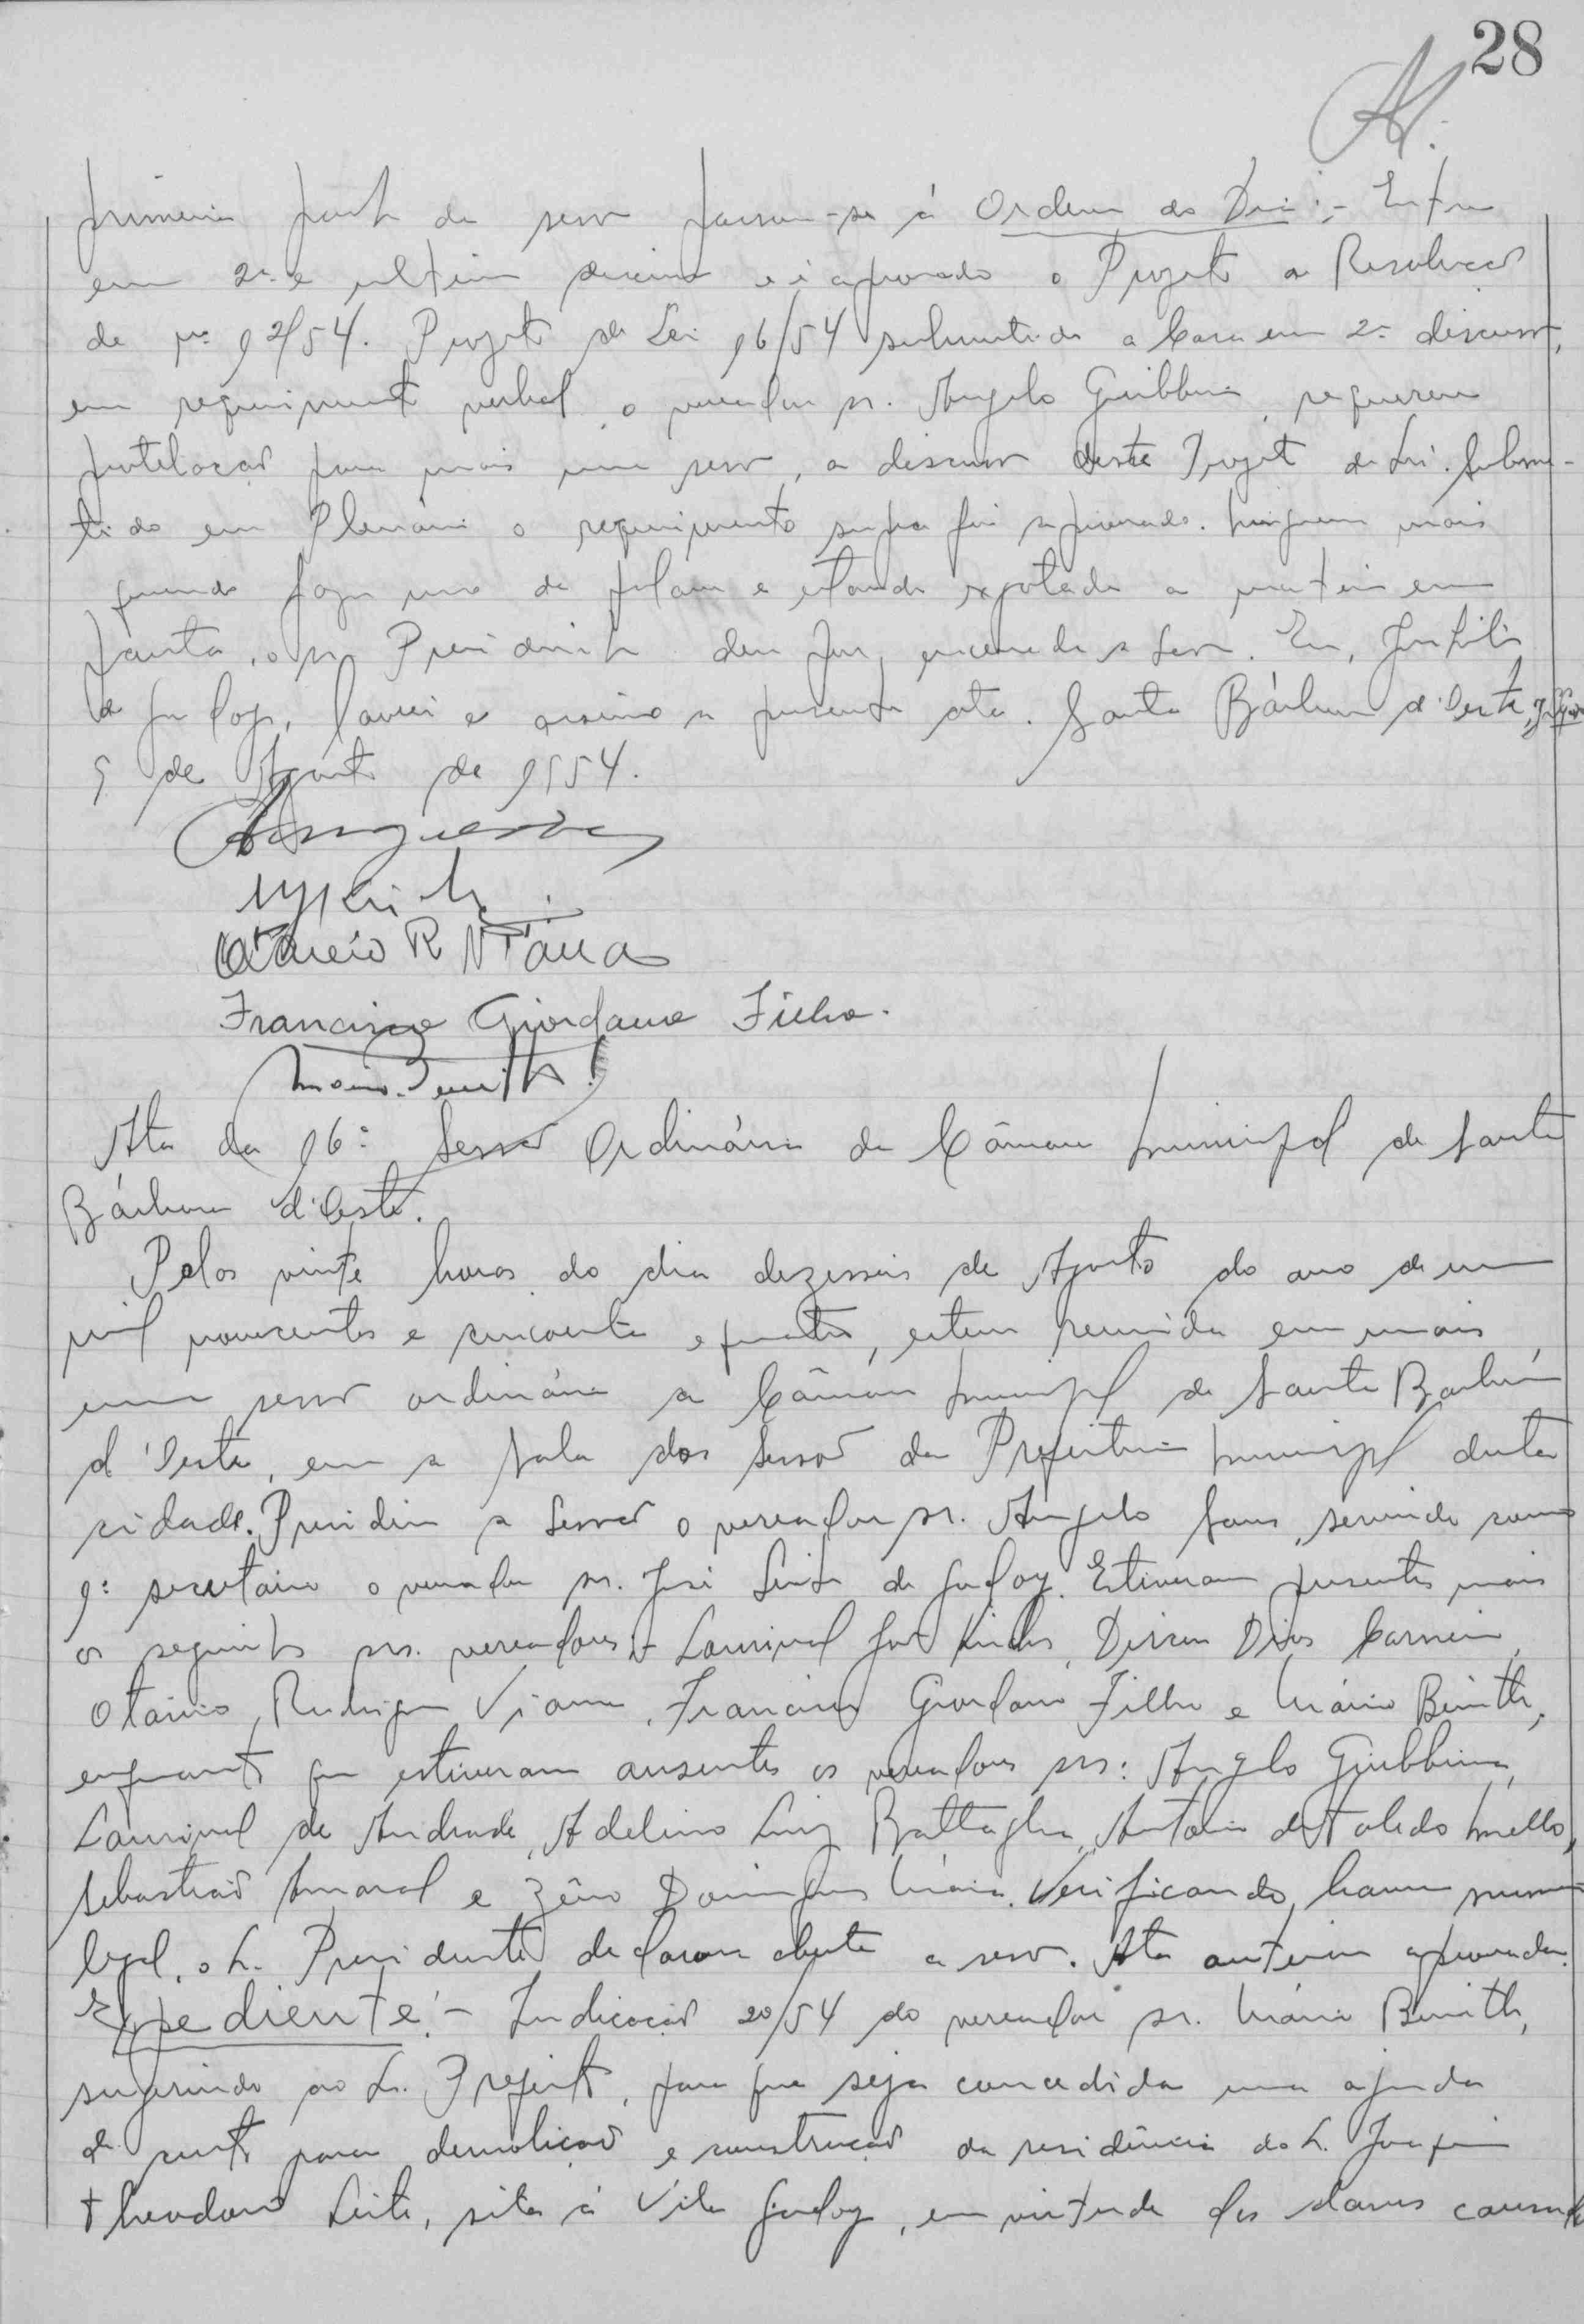 28
primeira parte da sessão passou-se à Ordem do Dia:- Entra
em 2ª e ultima discussão e é aprovado o Projeto de Resolução
de nº 12/54. Projeto de Lei 16/54 submetido a Casa em 2ª discussão,
em requerimento verbal, o vereador sr. Angelo Giubbina, requereu
protelação para mais uma sessão, a discussão deste Projeto de Lei. Subme-
tido em Plenário o requerimento supra foi aprovado. Ninguem mais
querendo fazer uso da palavra e estando esgotada a matéria em
pauta, o sr. Presidente deu por encerrada a sessão. Eu, José Leite
de Godoy, lavrei e assino a presente ata. Santa Bárbara d'Oeste,
de Agosto de 1954.
Otavio R Viana
Francisco Giordano Filho.
Mario Benith
Ata da 16ª Sessão Ordinária da Câmara Municipal de Santa
Bárbara d'Oeste.
Pelas vinte horas do dia dezesseis de Agosto do ano de um
mil novecentos e cincoenta e quatro, esteve reunida em mais
uma sessão ordinária a Câmara Municipal de Santa Barbára
d'Oeste, em a sala das Sessões da Prefeitura Municipal desta
cidade. Presidiu a Sessão o vereador sr. Angelo Sans, servindo como
1º secretário o vereador sr. José Leite de Godoy. Estiveram presentes mais
os seguintes srs. vereadores:- Lourival José, Dirceu Dias Carneiro,
Otávio Rodrigues Viana, Francisco Giordano Filho e Mário Benith,
enquanto que estiveram ausentes os vereadores srs: Angelo Giubbina,
Lourival de Andrade, Adelino Luiz Battaglia, Antonio de Toledo Mello,
Sebastião Amaral e Zêno Domingues Maia. Verificando haver numero
legal, o Sr. Presidente declarou aberta a sessão. Ata anterior aprovada.
Expediente:- Indicação 20/54 do vereador sr. Mário Benith,
sugerindo ao Sr. Prefeito, para que seja concedida uma ajuda
de custo para demolição e construção da residência do Sr. Joaquim
Theodoro Leite, sita à Vila Godoy, em virtude dos danos causados